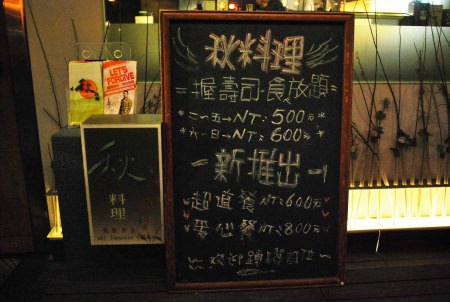 秋料理
握壽司·食放題
*二~五→NT:500元
*六~日→NT:600元
新推出
超值餐NT:600元
愛心餐NT:800元
~歡迎踴躍訂位~
LET'S
FORGIVE
秋
料理
aki Japanese